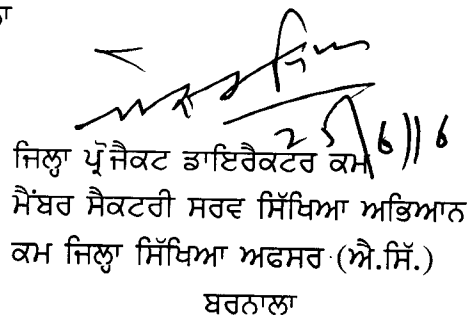 25/6/16
ਜਿਲ੍ਹਾ ਪ੍ਰੋਜੈਕਟ ਡਾਇਰੈਕਟਰ ਕਮ
ਮੈਂਬਰ ਸੈਕਟਰੀ ਸਰਵ ਸਿੱਖਿਆ ਅਭਿਆਨ
ਕਮ ਜਿਲ੍ਹਾ ਸਿੱਖਿਆ ਅਫਸਰ (ਐ.ਸਿੱ.)
ਬਰਨਾਲਾ